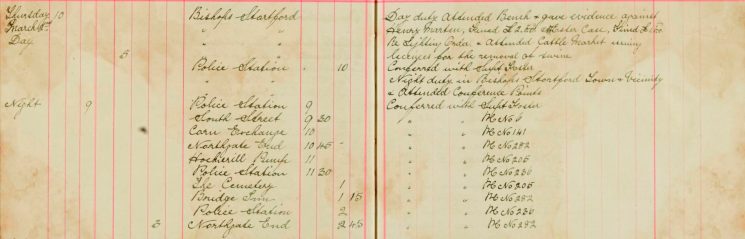 Thursday 10 Bishops Stortford Day duty Attended Bench & gave evidence against
March 1st " " Henry Marten, Fined £2.0.0 Case, Fined £1.0.0
Day " " Re Lighting Order, & Attended Cattle Market issuing
5 " " licences for the removal of swine
Police Station 10 Conferred with Supt Foster
" Night duty in Bishops Stortford Town & Vicinity
& Attended Conference Points
Night 9 Police Station 9 Conferred with Supt Foster
South Street 9 30 " " PC No 6
Corn Exchange 10 " " PC No 141
Northgate End 10 45 " " PC No 282
Hockerill Pump 11 " " PC No 205
Police Station 11 30 " " PC No 230
The Cemetery 1 " " PC No 205
Bridge Inn 1 15 " " PC No 282
Police Station 2 " " PC No 230
3 Northgate End 2 45 " " PC No 282